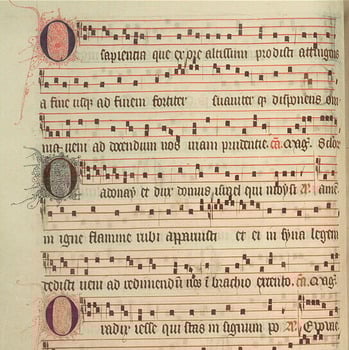 O sapientia que ex ore altissimi prodisti attingens
a fine usq; ad finem fortiter suauiter q; disponens om
nia ueni ad docendum nos uiam prudentie.
O adonay et dux domus isrl qui moysi
in igne flamme rubi apparuisti et ei in syna legem
dedisti ueni ad redimendū nos ī brachio extento.
O radix iesse qui stas in signum po